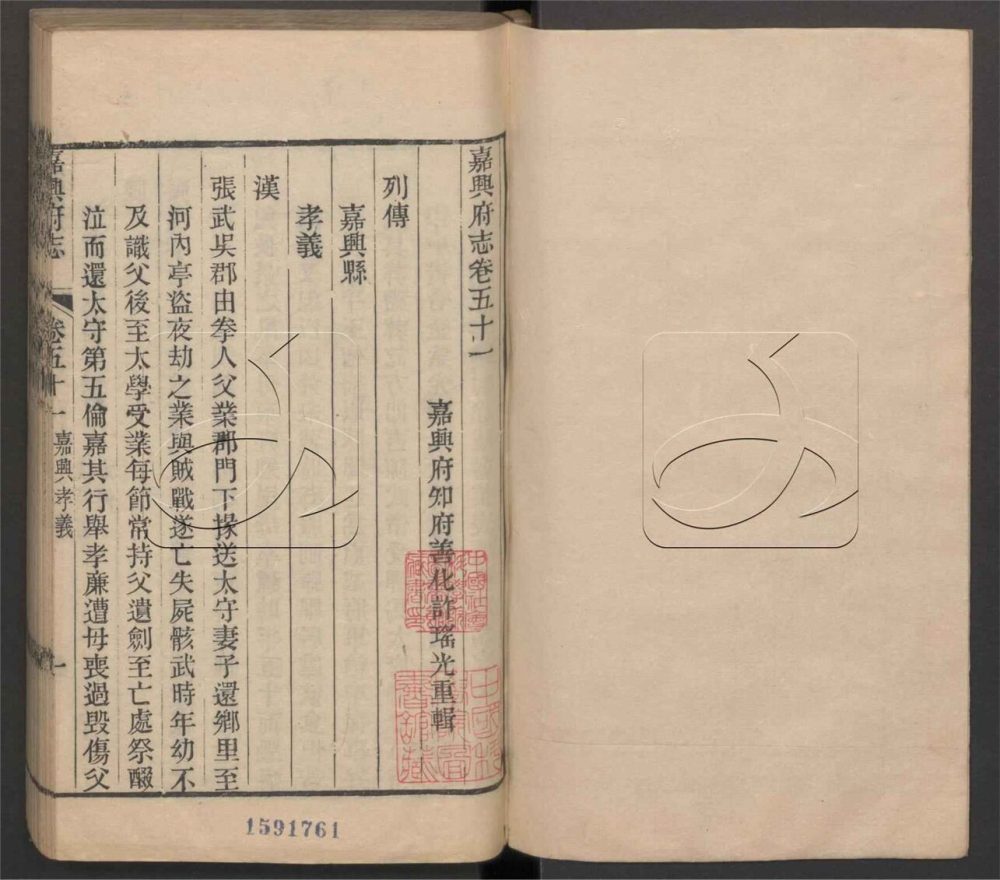 嘉興府志卷五十一
嘉興府知府善化許瑤光重輯
列傳
嘉興縣
孝義
漢
張武吳郡由拳人父業郡門下掾送太守妻子還鄉里至
河內亭盜夜劫之業與賊戰遂亡失屍骸武時年幼不
及識父後至太學受業每節常持父遺劍至亡處祭醊
泣而還太守第五倫嘉其行舉孝廉遭母喪過毀傷父
嘉興府志
卷五十一
嘉興孝義
一
1591761